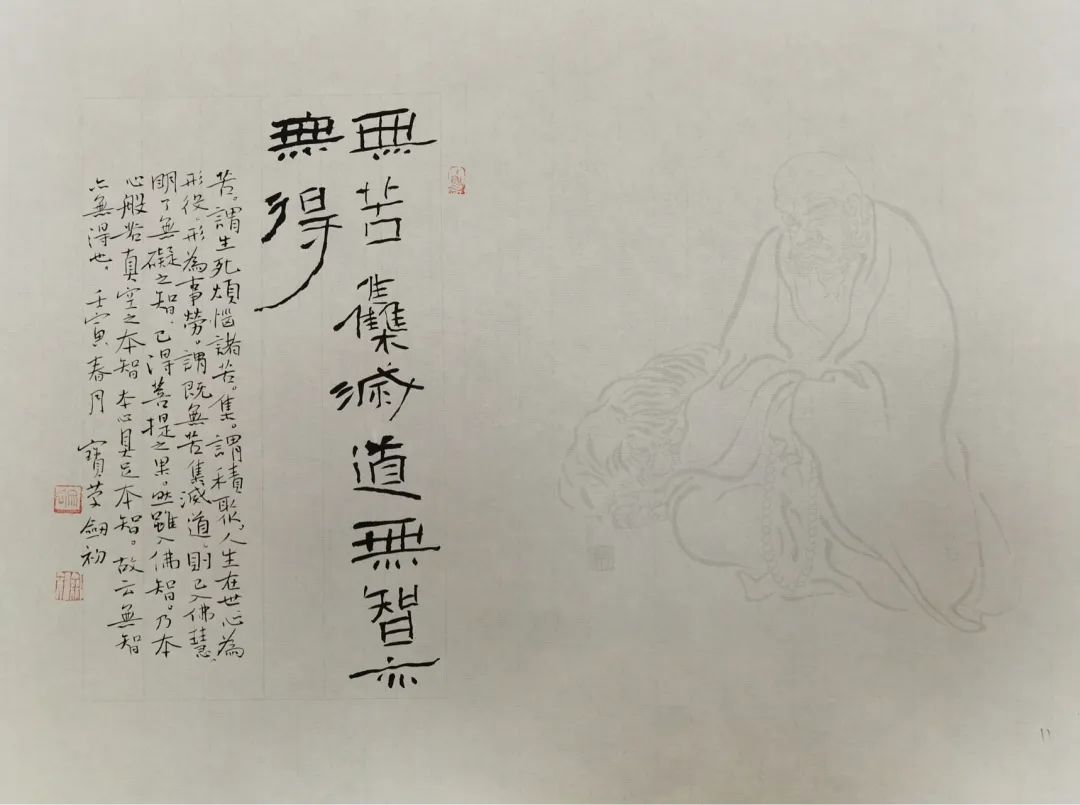 無苦雧滅道無智亦
無得
苦。謂生死煩惱諸苦。集。謂積聚。人生在世心為
形役。形為事勞。謂既無苦集滅道。則已入佛慧、
明了無礙之智、已得菩提之果。然雖入佛智。乃本
心般若真空之本智 本心具足本智。故云無智
亦無得也、壬寅春月 寶荣劍初